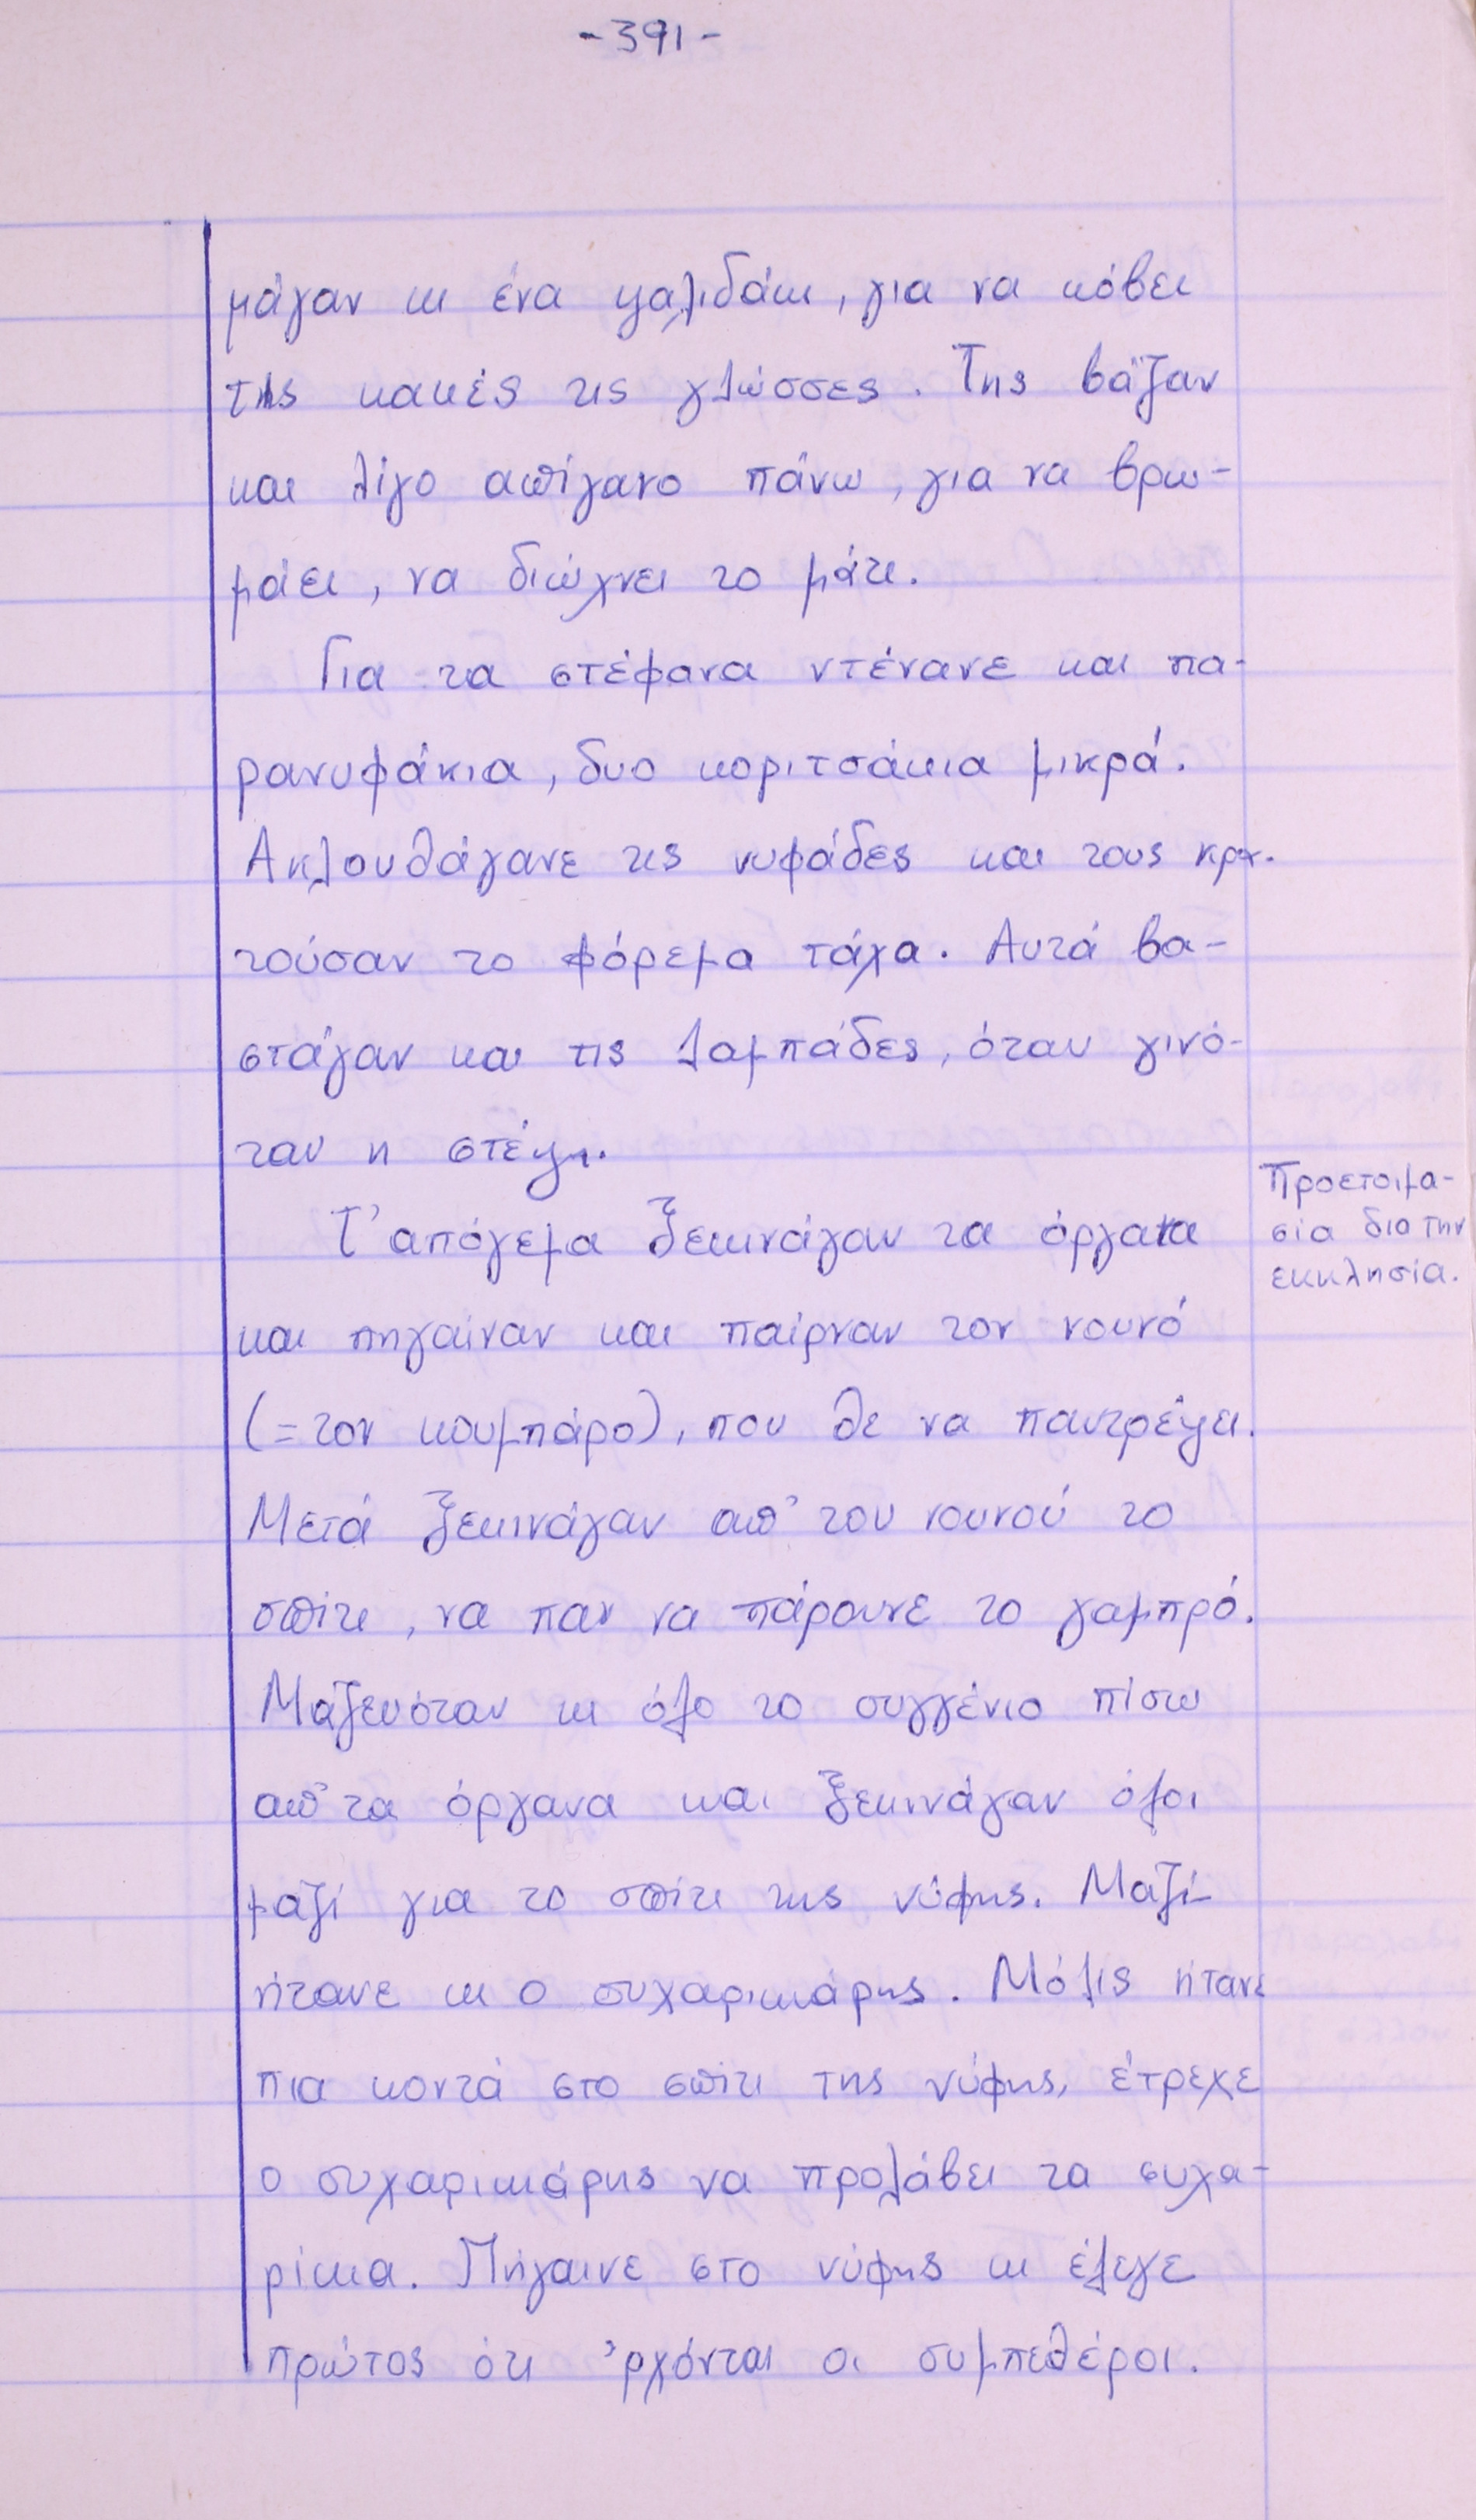 -391-
μάγαν κι ένα ψαλιδάκι, για να κόβει
της κακές τις γλώσσες. Της βάζαν
και λίγο απίγανο πάνω, για να βρω-
μάει, να διώχνει το μάτι.
Για τα στέφανα ντένανε και πα-
ρανυφάκια, δυο κοριτσάκια μικρά.
Ακλουθάγανε τις νυφάδες και τους κρα-
τούσαν το φόρεμα τάχα. Αυτά βα-
στάγαν και τις λαμπάδες, όταν γινό-
ταν η στέψη.
Τ' απόγεμα ξεκινάγαν τα όργανα
και πηγαίναν και παίρναν τον νουνό
(= τον κουμπάρο), που θε να παντρέψει.
Μετά ξεκινάγαν απ' του νουνού το
σπίτι, να παν να πάρουνε το γαμπρό.
Μαζευόταν κι όλο το συγγένιο πίσω
απ' τα όργανα και ξεκινάγαν όλοι
μαζί για το σπίτι της νύφης. Μαζί
ήτανε κι ο συχαρικιάρης. Μόλις ήτανε
πια κοντά στο σπίτι της νύφης, έτρεχε
ο συχαρικιάρης να προλάβει τα συχα-
ρίκια. Πήγαινε στο νύφης κι έλεγε
πρώτος ότι 'ρχόνται οι συμπεθέροι.
Προετοιμα-
σία δια την
εκκλησία.